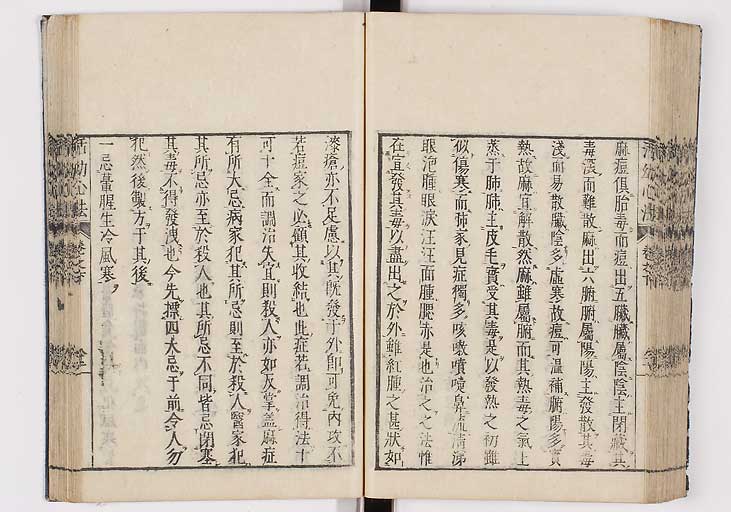 麻痘俱胎毒而痘出五臟臟屬陰陰主閉藏其
毒深而難散麻出六腑腑屬陽陽主發散其毒
淺而易散臟陰多虛寒故痘可溫補腑陽多實
熱故麻宜解散然麻雖屬腑而其熱毒之氣上
蒸于肺肺主皮毛實受其毒是以發熱之初雖
似傷寒而肺家見症獨多咳嗽噴嚏鼻流清涕
眼泡腫眼淚汪汪面腫腮赤是也治之之法惟
在宣發其毒以盡出之於外雖紅腫之甚狀如
漆瘡亦不足慮以其旣發于外卽可免內攻不
若痘家之必顧其收結也此症若調治得法十
可十全而調治失宜則殺人亦如反掌蓋麻症
有所大忌病家犯其所忌則至於殺人醫家犯
其所忌亦至於殺人也其所忌不同皆忌閉塞
其毒不得發洩也今先摽四大忌于前令人勿
犯然後製方于其後
一忌葷腥生冷風寒
活幼心法